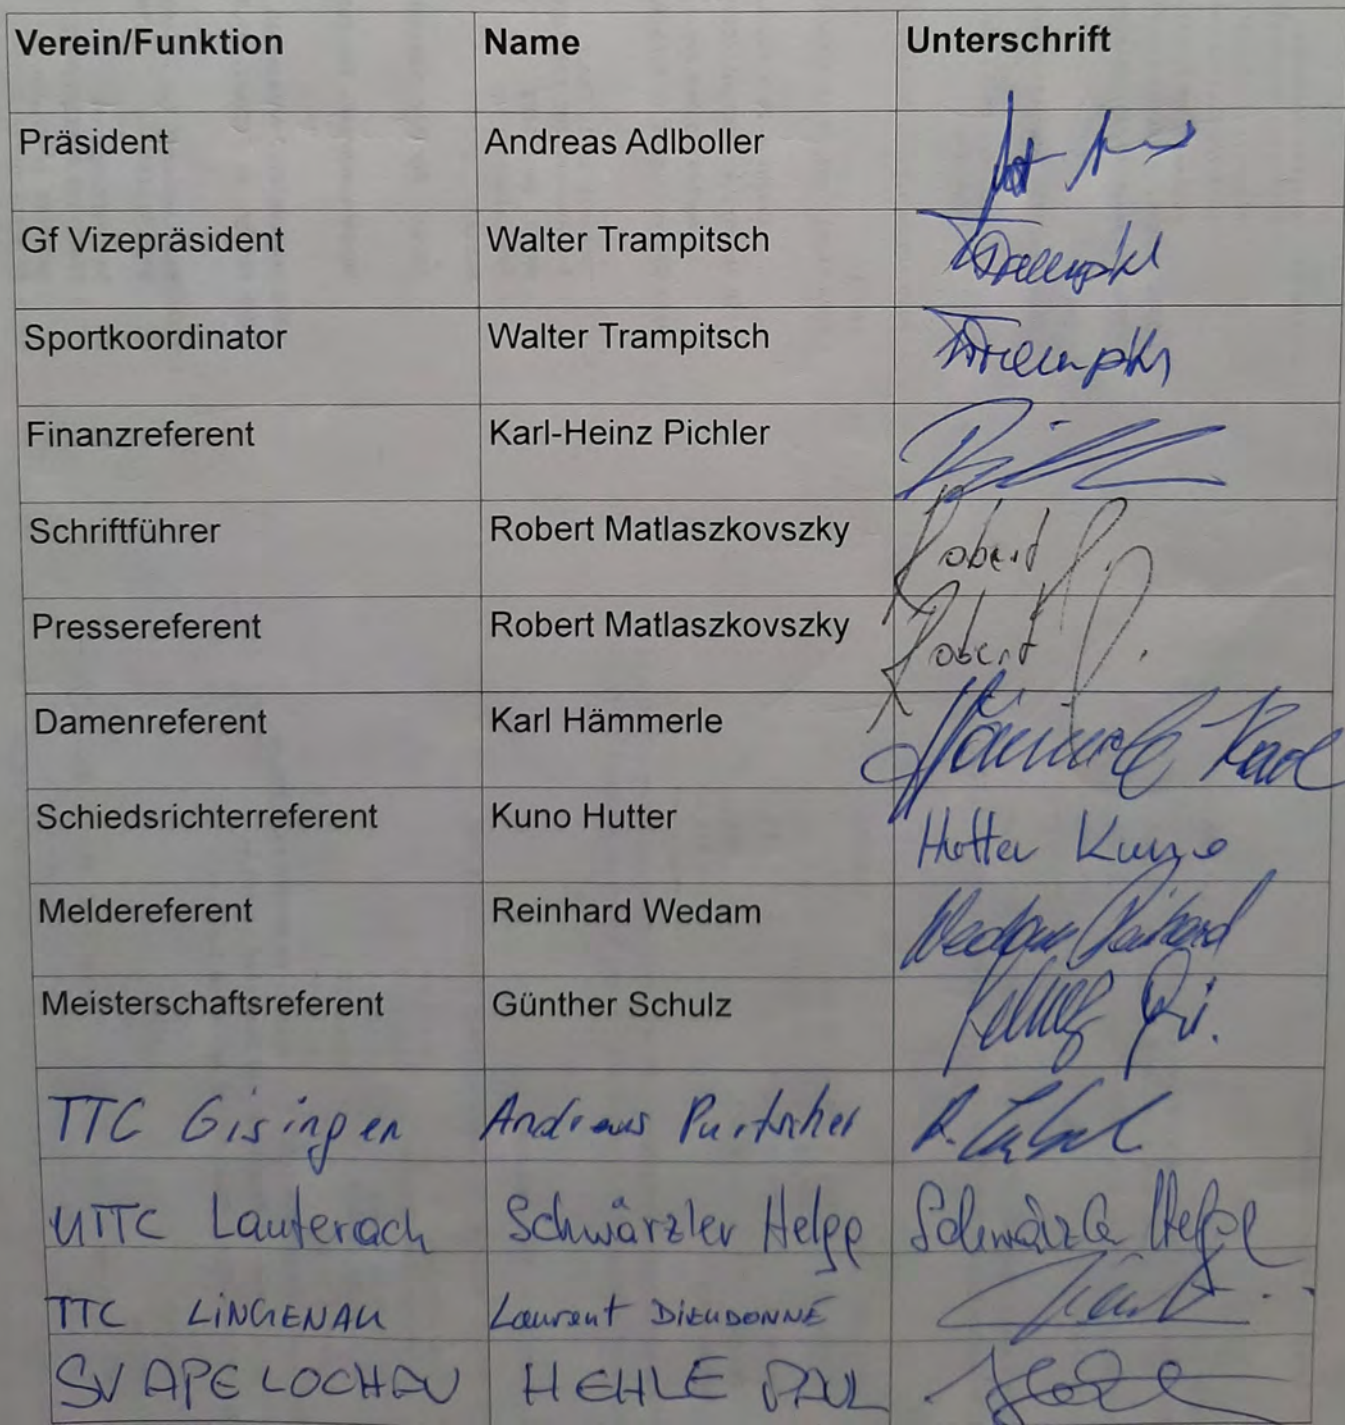 Verein/Funktion Name Unterschrift
Präsident Andreas Adlboller
Gf Vizepräsident Walter Trampitsch
Sportkoordinator Walter Trampitsch
Finanzreferent Karl-Heinz Pichler
Schriftführer Robert Matlaszkovszky Robert
Pressereferent Robert Matlaszkovszky Robert
Damenreferent Karl Hämmerle Hämmerle Karl
Schiedsrichterreferent Kuno Hutter Hutter Kuno
Meldereferent Reinhard Wedam Wedam Reinhard
Meisterschaftsreferent Günther Schulz
TTC Gisingen Andreas Purtscher
UTTC Lauterach Schwärzler Helge Schwärzler Helge
TTC LINGENAU Laurent DIEUDONNÉ
SV APE LOCHAU HEHLE PAUL